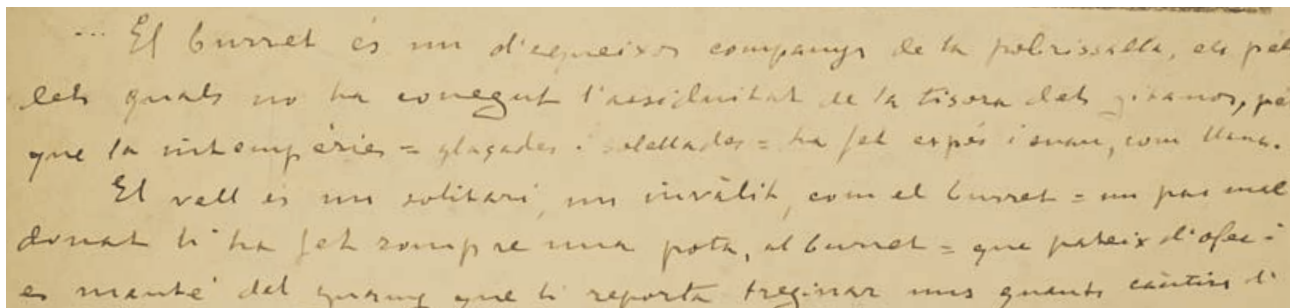 ... El burret és un d'aqueixos companys de la pobrissalla, el pèl
dels quals no ha conegut l'assiduitat de la tisora dels gitanos, pe
que la intempèrie = glaçades i solellades = ha fet espès i suau, com llana.
El vell és un solitari, un invàlit, com el burret = un pas mal
donat li ha fet rompre una pota, al burret = que pateix d'ofec i
es manté del guany que li reporta treginar uns quants càntirs d'